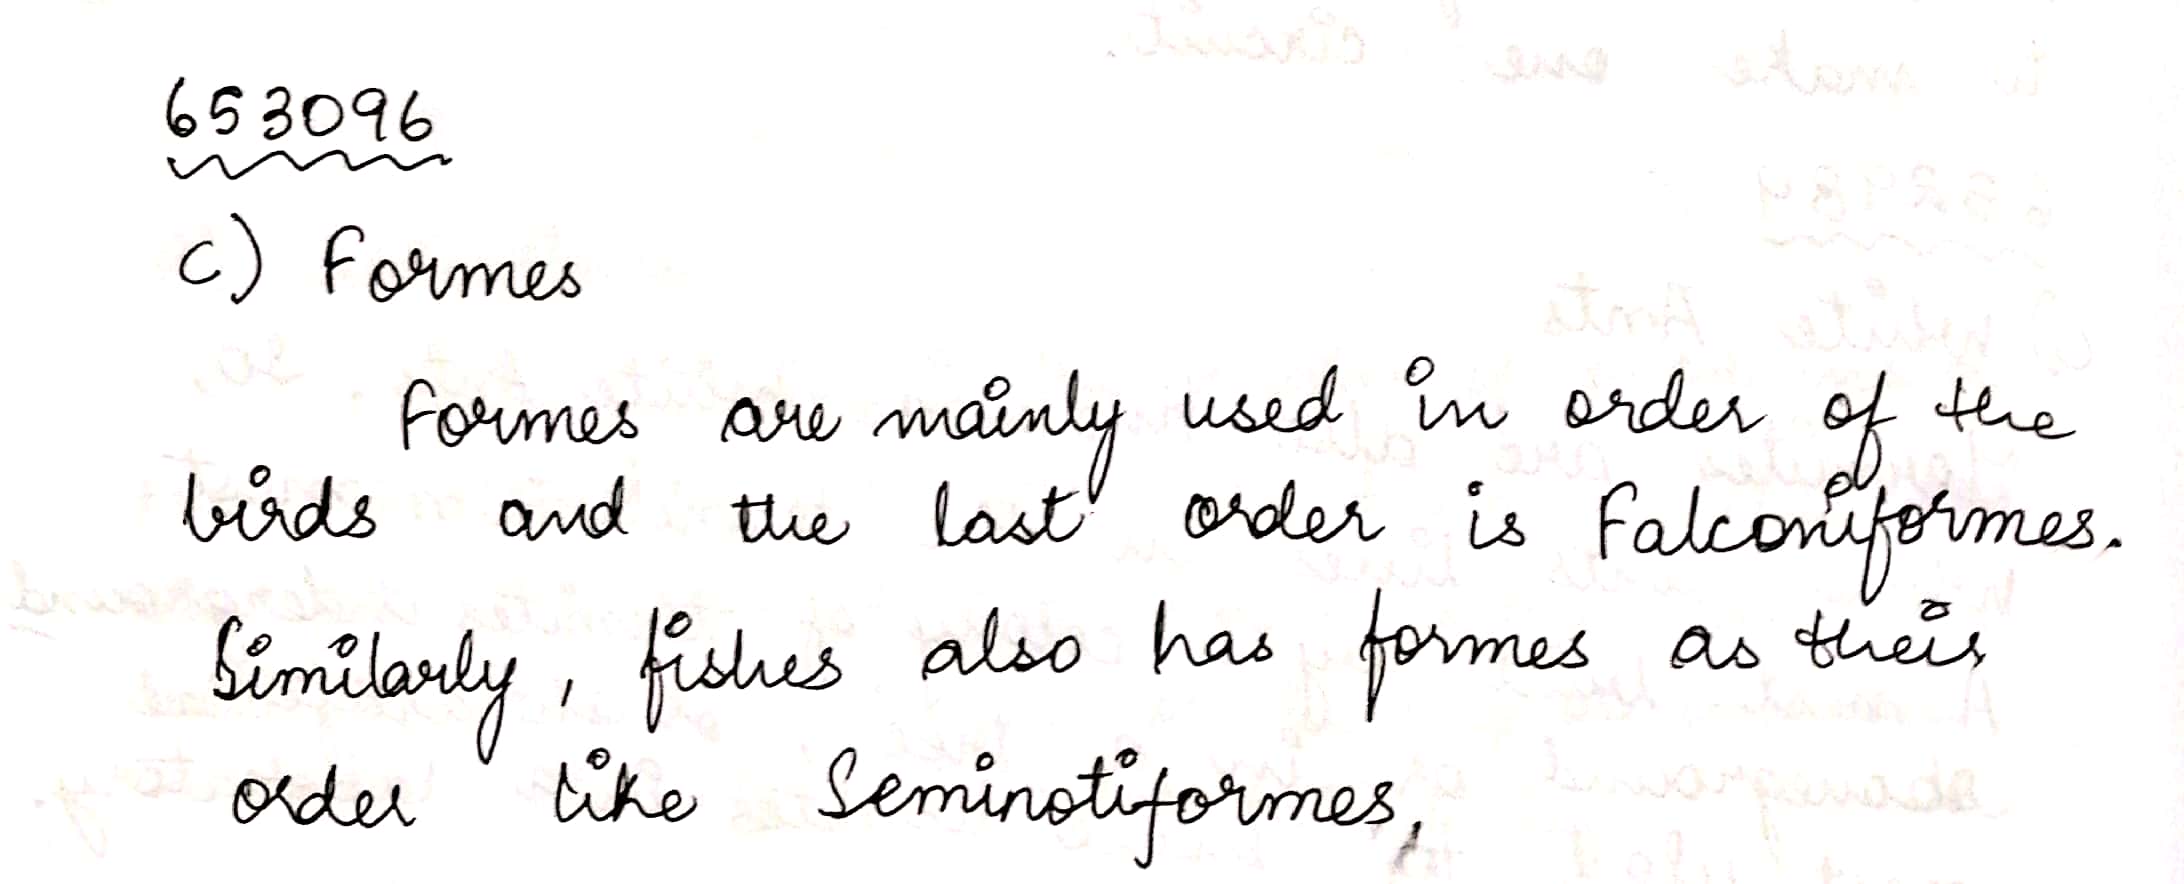 653096
c) Formes
Formes are mainly used in order of the
birds and the last order is Falconiformes.
Similarly, fishes also has formes as their
order like Seminotiformes,